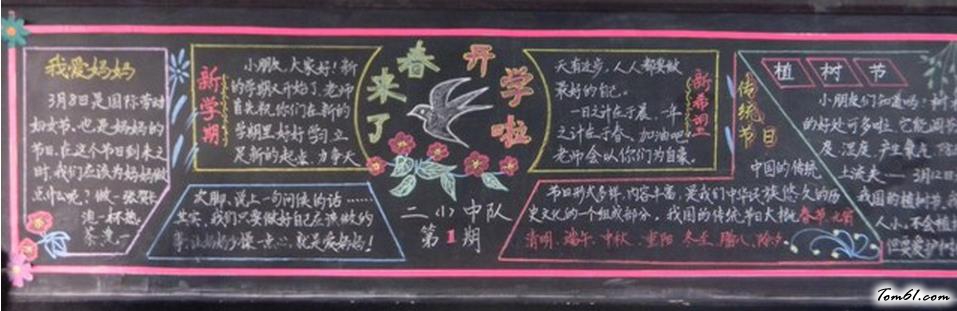 我爱妈妈
3月8日是国际劳动
妇女节,也是妈妈的
节日,在这个节日到来之
时,我们应该为妈妈做
点什么呢?做一张贺卡
浇一杯热
茶,洗一
次脚、说上一句问候的话……
其实,我们只要做好自己应该做的
事,让妈妈少操一点心,就是爱妈妈!
新学期
小朋友,大家好!新
的学期又开始了,老师
首先祝你们在新的
学期里好好学习,立
足新的起点,力争天
春来了
开学啦
二(1)中队
第1期
天有进步,人人都要做
最好的自己。
一日之计在于晨,一年
之计在于春,加油吧!
老师会以你们为自豪。
新希望
传统节日
中国的传统
节日形式多样,内容丰富,是我们中华民族悠久的历
史文化的一个组成部分。我国的传统节日大概
春节、元宵
清明、端午、中秋、重阳、冬至、腊八、除夕。
植树节
小朋友们知道吗?树
的好处可多啦,它能调节
度、湿度,产生氧气
上流失
3月12日
我国的植树节
人小,不会植
但要爱护树
Tom61.com